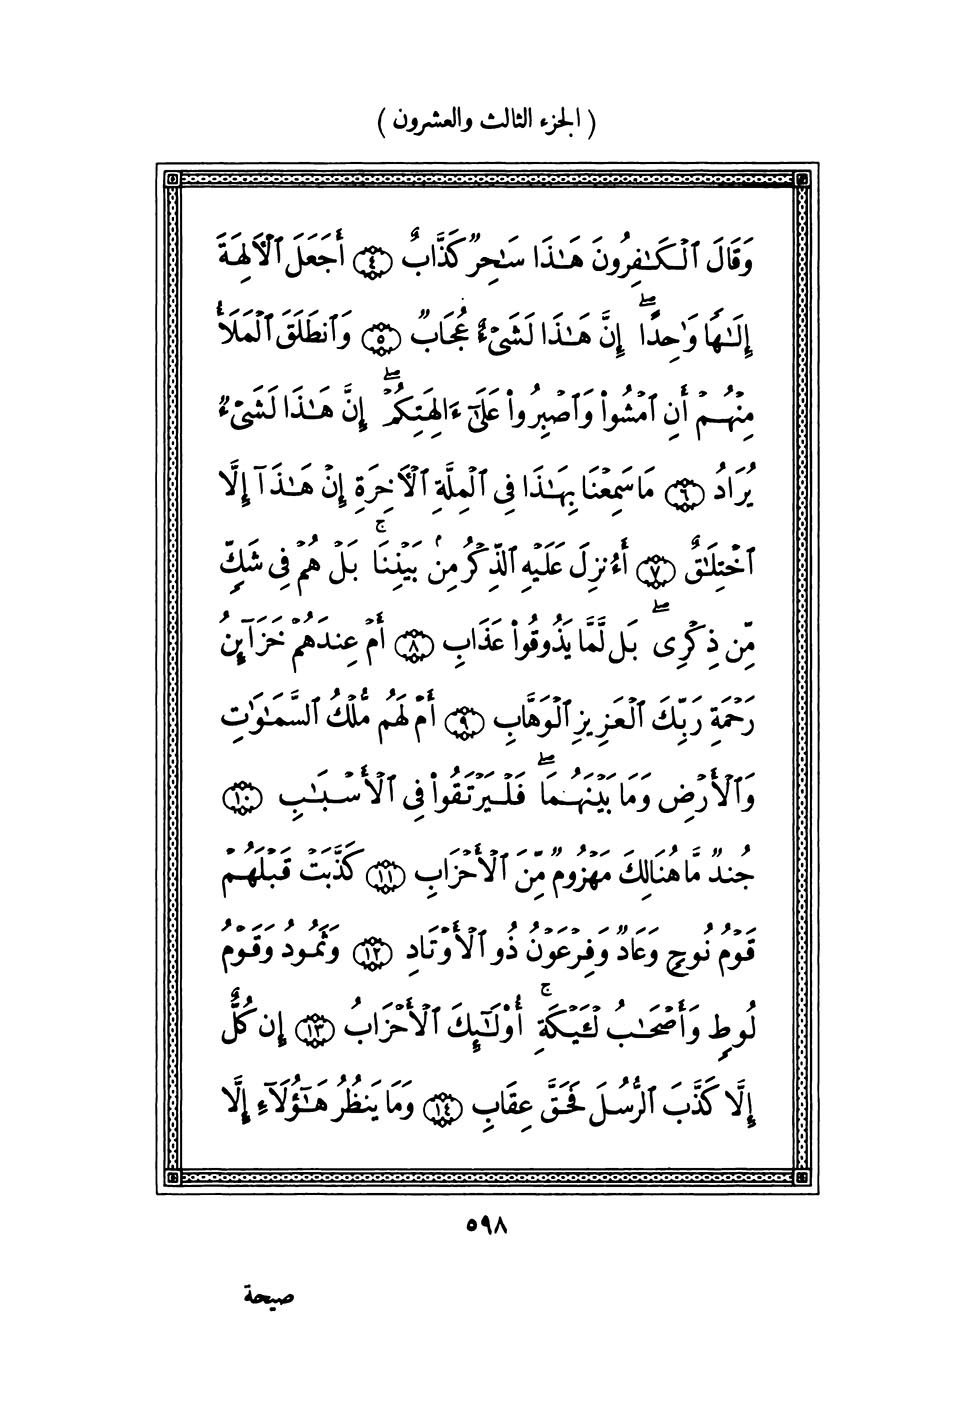 ( الجزء الثالث والعشرون )
وَقَالَ ٱلْكَـٰفِرُونَ هَـٰذَا سَـٰحِرٌ كَذَّابٌ ﴿٤﴾ أَجَعَلَ ٱلْأَلِهَةَ
إِلَـٰهًا وَٰحِدًا ۖ إِنَّ هَـٰذَا لَشَىْءٌ عُجَابٌ ﴿٥﴾ وَٱنطَلَقَ ٱلْمَلَأُ
مِنْهُمْ أَنِ ٱمْشُوا۟ وَٱصْبِرُوا۟ عَلَىٰٓ ءَالِهَتِكُمْ ۖ إِنَّ هَـٰذَا لَشَىْءٌ
يُرَادُ ﴿٦﴾ مَا سَمِعْنَا بِهَـٰذَا فِى ٱلْمِلَّةِ ٱلْأَخِرَةِ إِنْ هَـٰذَآ إِلَّا
ٱخْتِلَـٰقٌ ﴿٧﴾ أَءُنزِلَ عَلَيْهِ ٱلذِّكْرُ مِنۢ بَيْنِنَا ۚ بَلْ هُمْ فِى شَكٍّ
مِّن ذِكْرِى ۖ بَل لَّمَّا يَذُوقُوا۟ عَذَابِ ﴿٨﴾ أَمْ عِندَهُمْ خَزَآئِنُ
رَحْمَةِ رَبِّكَ ٱلْعَزِيزِ ٱلْوَهَّابِ ﴿٩﴾ أَمْ لَهُم مُّلْكُ ٱلسَّمَـٰوَٰتِ
وَٱلْأَرْضِ وَمَا بَيْنَهُمَا ۖ فَلْيَرْتَقُوا۟ فِى ٱلْأَسْبَـٰبِ ﴿١٠﴾
جُندٌ مَّا هُنَالِكَ مَهْزُومٌ مِّنَ ٱلْأَحْزَابِ ﴿١١﴾ كَذَّبَتْ قَبْلَهُمْ
قَوْمُ نُوحٍ وَعَادٌ وَفِرْعَوْنُ ذُو ٱلْأَوْتَادِ ﴿١٢﴾ وَثَمُودُ وَقَوْمُ
لُوطٍ وَأَصْحَـٰبُ لْـَٔيْكَةِ ۚ أُو۟لَـٰٓئِكَ ٱلْأَحْزَابُ ﴿١٣﴾ إِن كُلٌّ
إِلَّا كَذَّبَ ٱلرُّسُلَ فَحَقَّ عِقَابِ ﴿١٤﴾ وَمَا يَنظُرُ هَـٰٓؤُلَآءِ إِلَّا
٥٩٨
صيحة